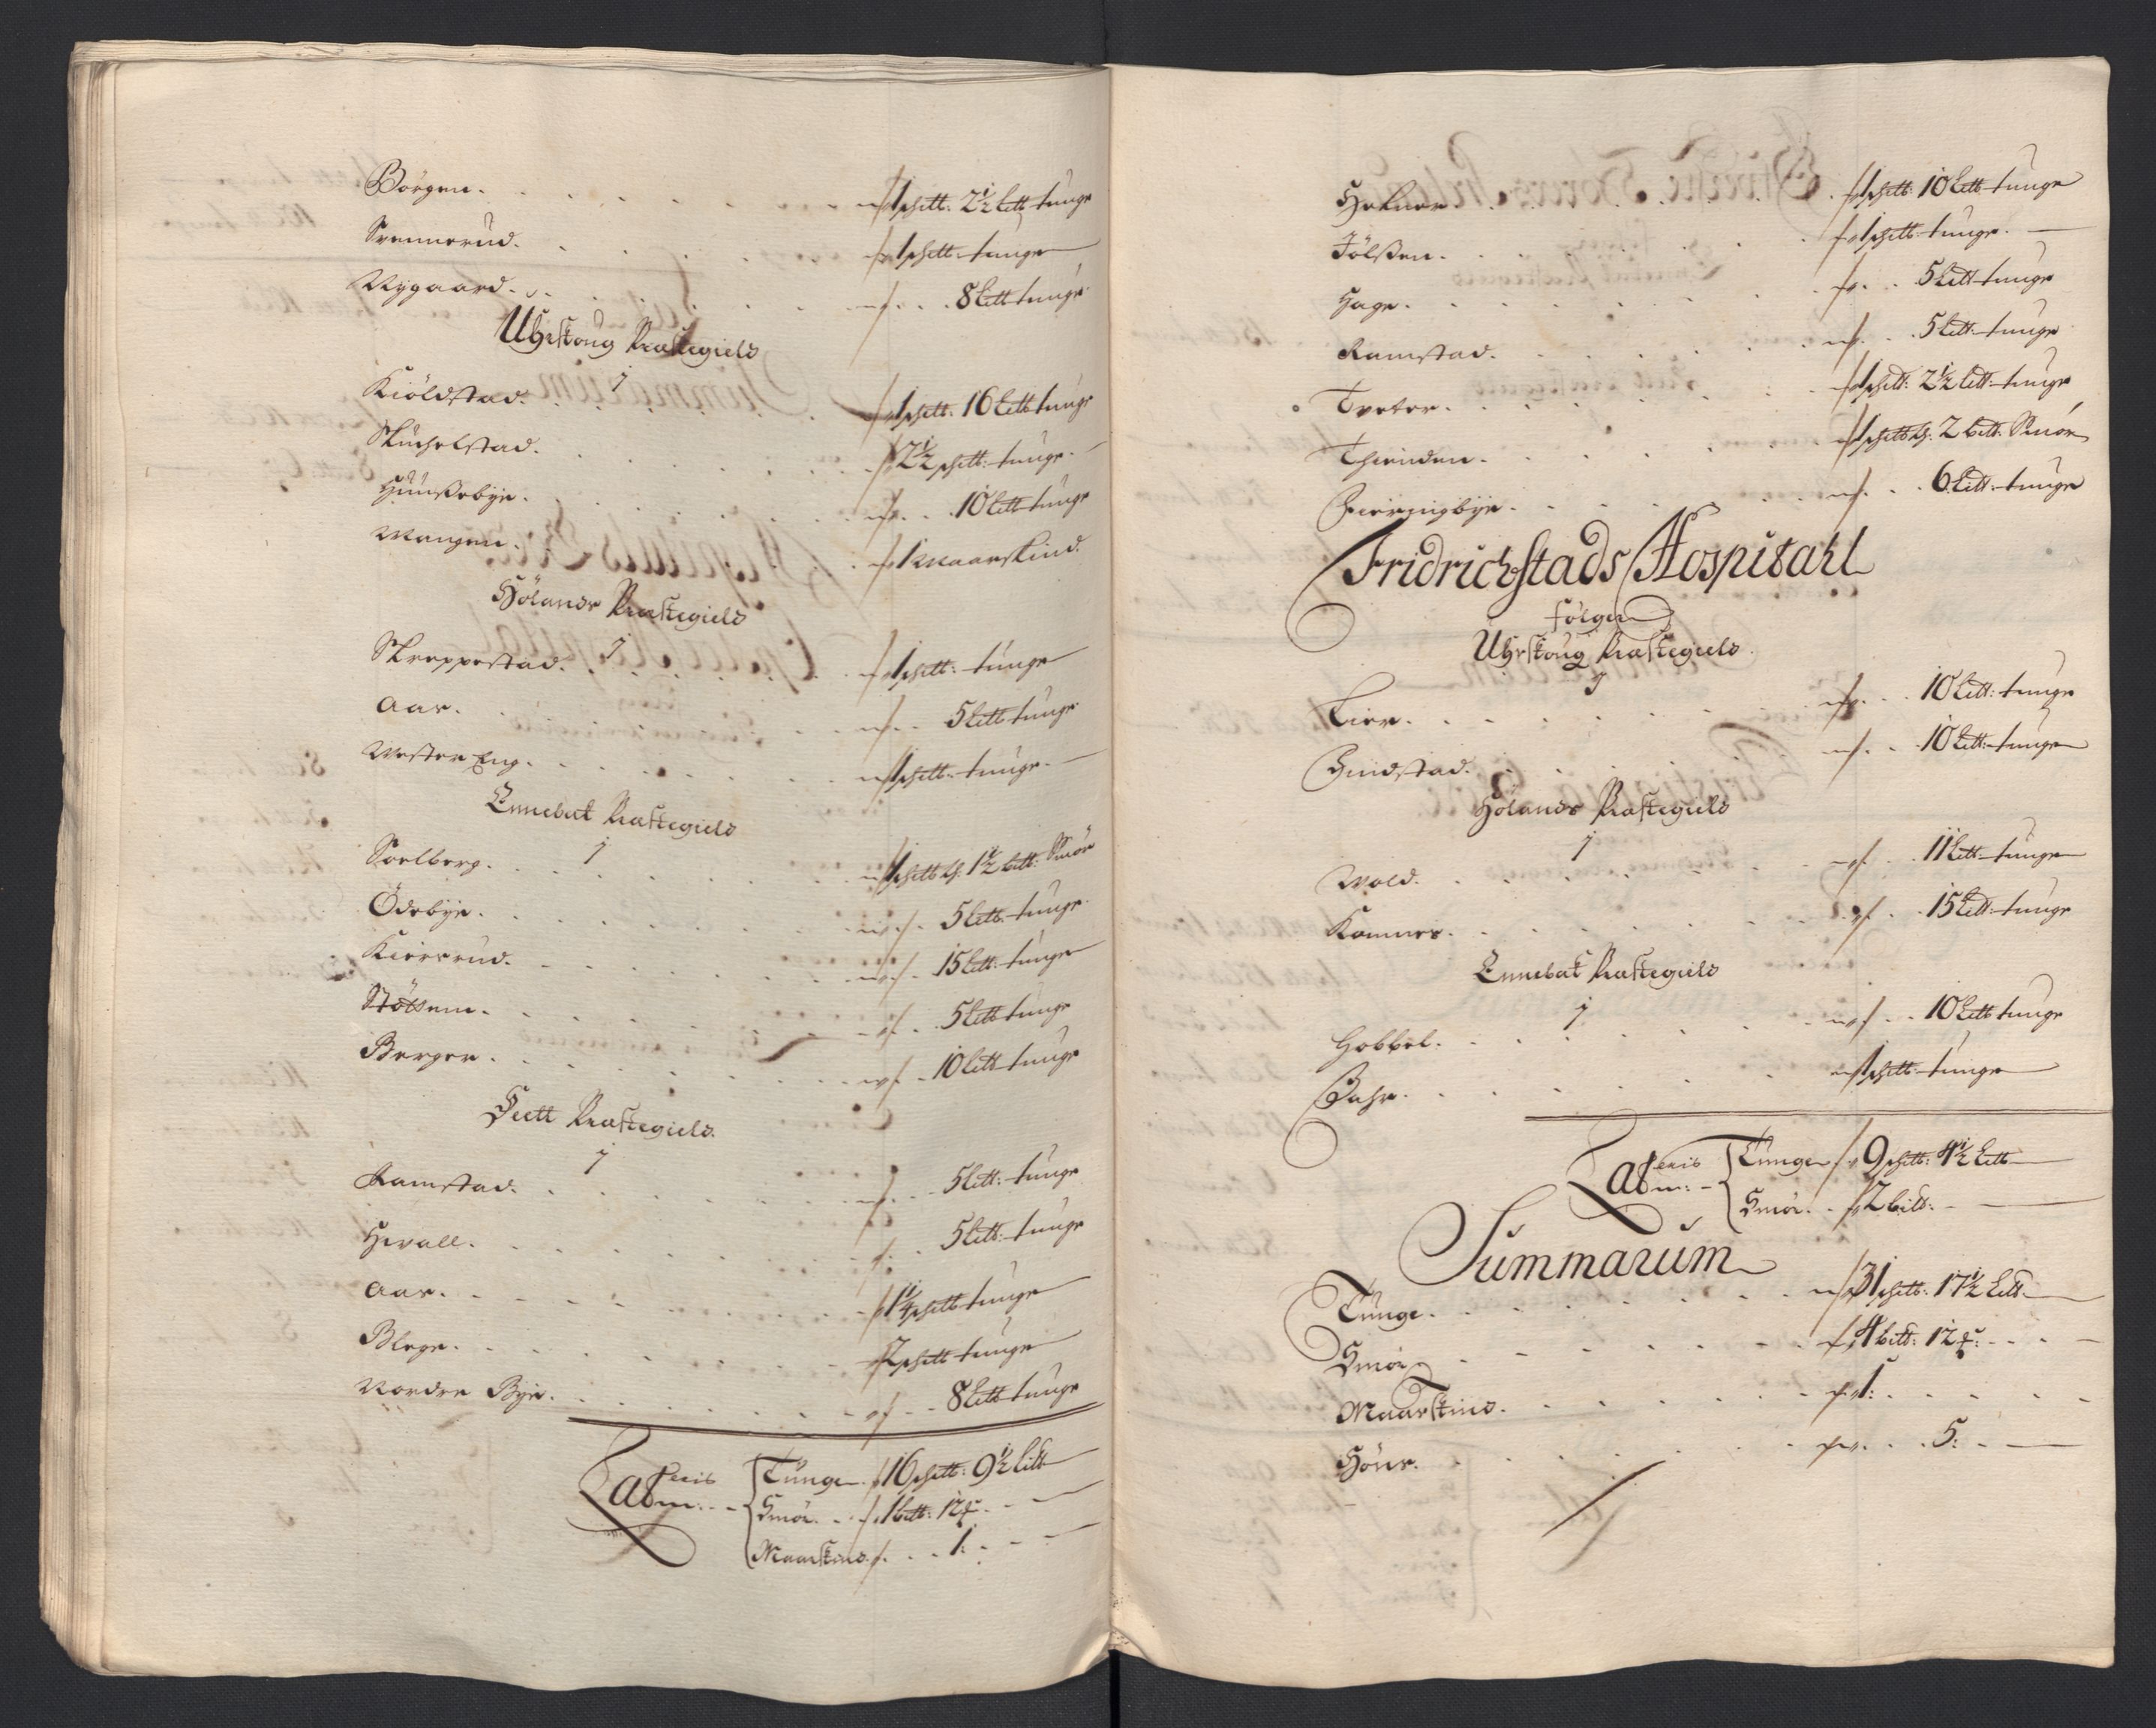 Borgen . . . 1 schtt: 2½ Lett tunge
Svennerud . . . 1 schtt: tunge
Nygaard . . . 8 Lett tunge
Uhrskoug Præstegield
Kiölstad . . . 1 schtt: 16 Lett tunge
Skuchelstad . . . 2½ schtt: tunge
Hünsebÿe . . . 10 Lett tunge
Mangen . . . 1 Maarskind
Hölands Præstegield
Skreppestad . . . 1 schtt: tunge
Aas . . . 5 Lett tunge
Wester Eng . . . 1 schtt: tunge
Ennebak Præstegield
Soelberg . . . 1 schtt 1½ bett: Smör
Ödebÿe . . . 5 Lett: tunge
Kiersrud . . . 15 Lett: tunge
Stöttem . . . 5 Lett tunge
Berger . . . 10 Lett tunge
Feett Præstegield
Ramstad . . . 5 Lett: tunge
Hevall . . . 5 Lett: tunge
Aas . . . 1¼ schtt tunge
Blege . . . 2 schtt tunge
Nordre Bÿe . . . 8 Lett tunge
Lateris Tunge 16 schtt: 9½ Lett
Smör . . 1 bett: 12
Maarskind . . . 1:
Hekner . . . 1 schtt: 10 Lett tunge
Jölsen . . . 1 schtt: tunge
Hage . . . 5 Lett tunge
Ramstad . . . 5 Lett: tunge
Tveter . . . 1 schtt: 2½ Lett tunge
. . . 1 schtt 2 bett: Smör
Gierringbÿe . . . 6 Lett: tunge
Fridrichstads Hospitahl
følger
Uhrskoug Præstegield
Lier . . . 10 Lett: tunge
Guidstad . . . 10 Lett: tunge
Hölands Præstegield
Wold . . . 11 Lett tunge
Kamnes . . . 15 Lett tunge
Ennebak Præstegield
Hobbel . . . 10 Lett tunge
Bahr . . . 1 schtt: tunge
Lateris Tunge 9 schtt: 4½ Lett
Smör . . 2 bett:
Summarum
Tunge . . . 31 schtt: 17½ Lett
Smör . . . 4 bett: 12
Maarskind . . . 1:
Höns . . . 5: